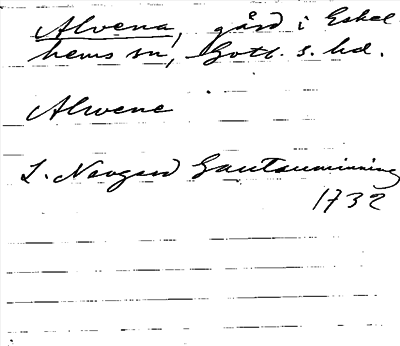 Alvena, gård i Eskel
hems sn, Gotl. s. hd.
Alvene
L. Neogard Gautauminning
1732